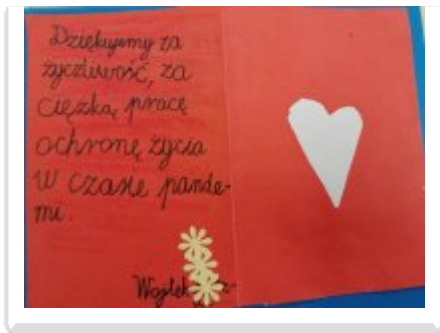 Dziękujemy za
życzliwość, za
ciężką pracę
ochronę życia
w czasie pande-
mi.
Wojtek